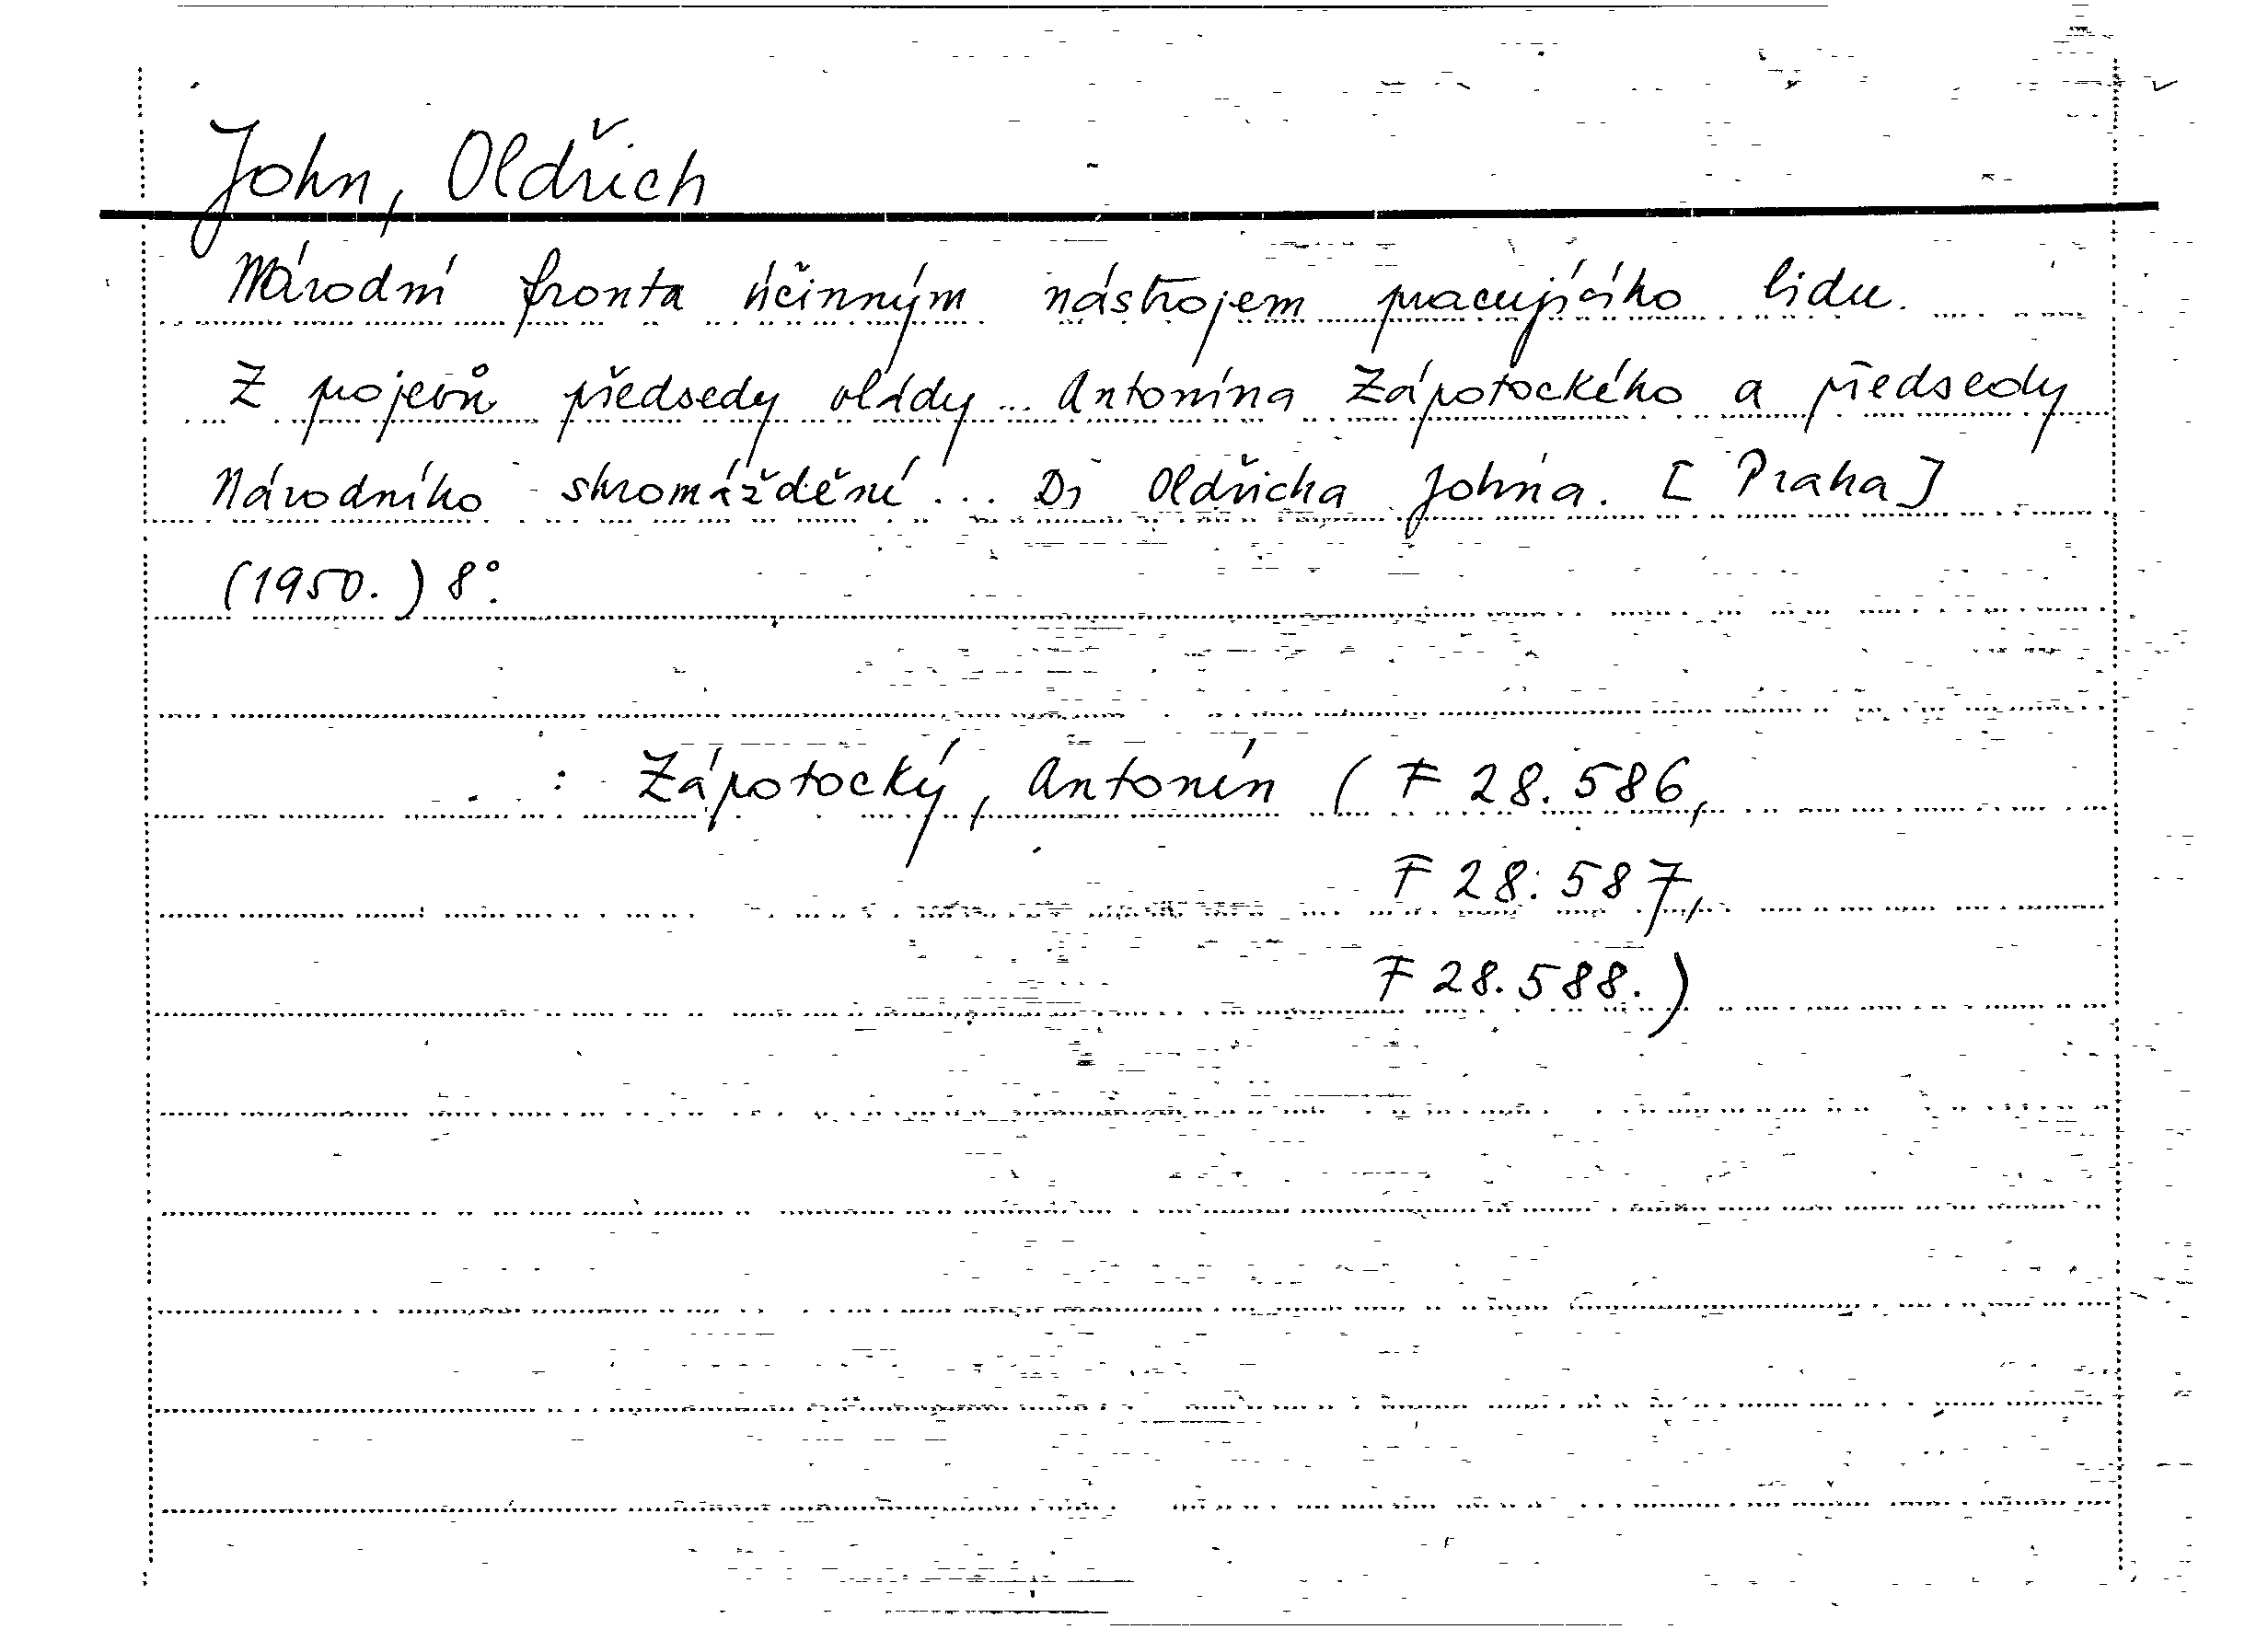 John, Oldřich
Národní fronta účinným nástrojem pracujícího lidu.
Z projevů předsedy vlády... Antonína Zápotockého a předsedy
Národního shromáždění... Dr Oldřicha Johna. [Praha]
(1950.) 8°.
: Zápotocký, Antonín (F 28.586,
F 28.587,
F 28.588.)